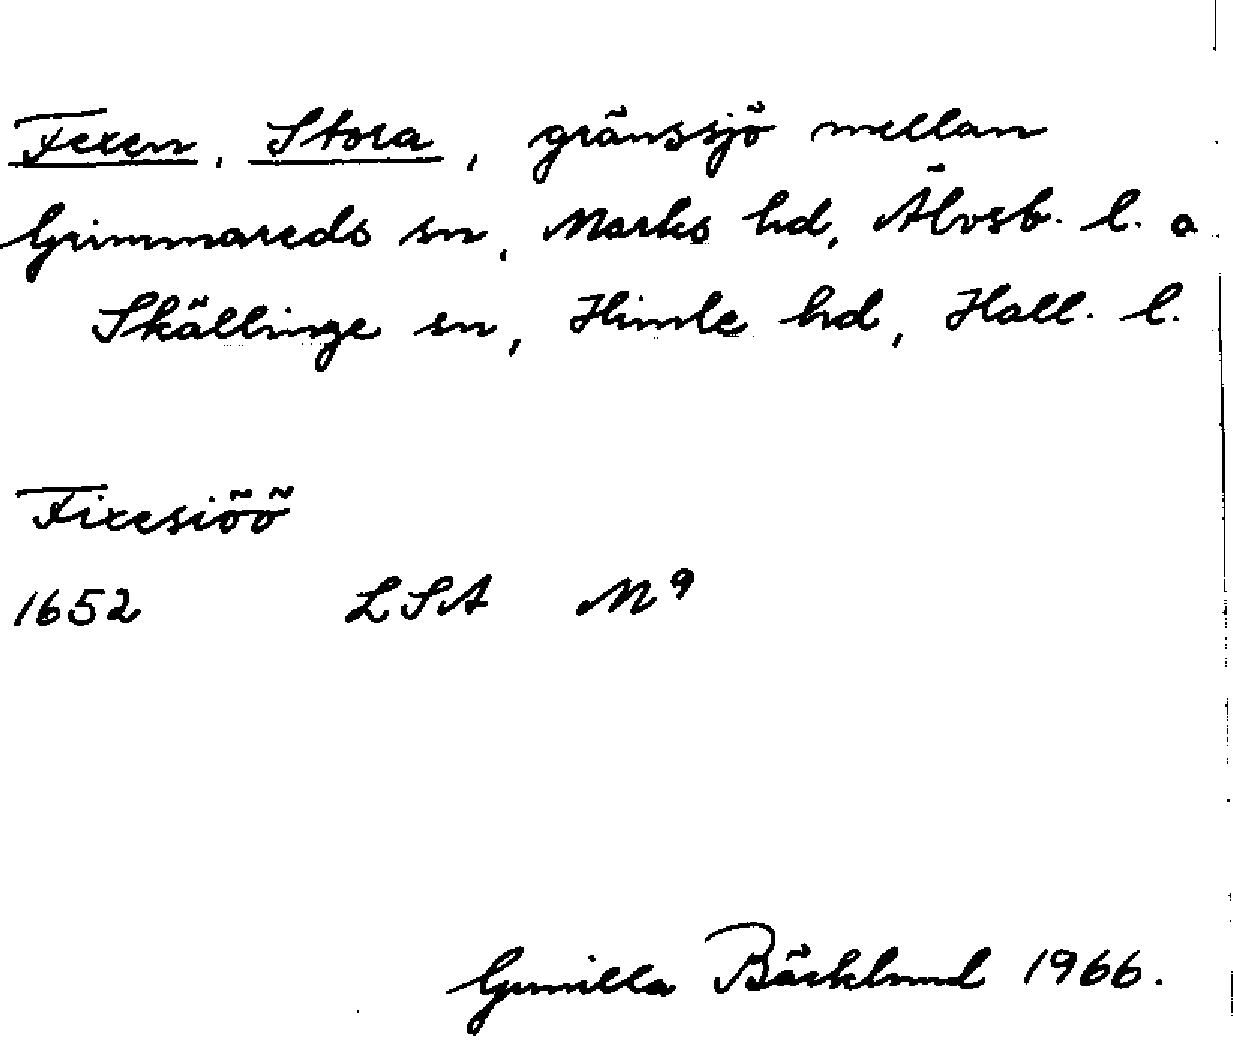 Fexen, Stora, gränssjö mellan
Grimmareds sn, Marks hd, Älvsb. l. o
Skällinge sn, Himle hd, Hall. l.
Fixesiöö
1652 LSA M9
Gunilla Bäcklund 1966.